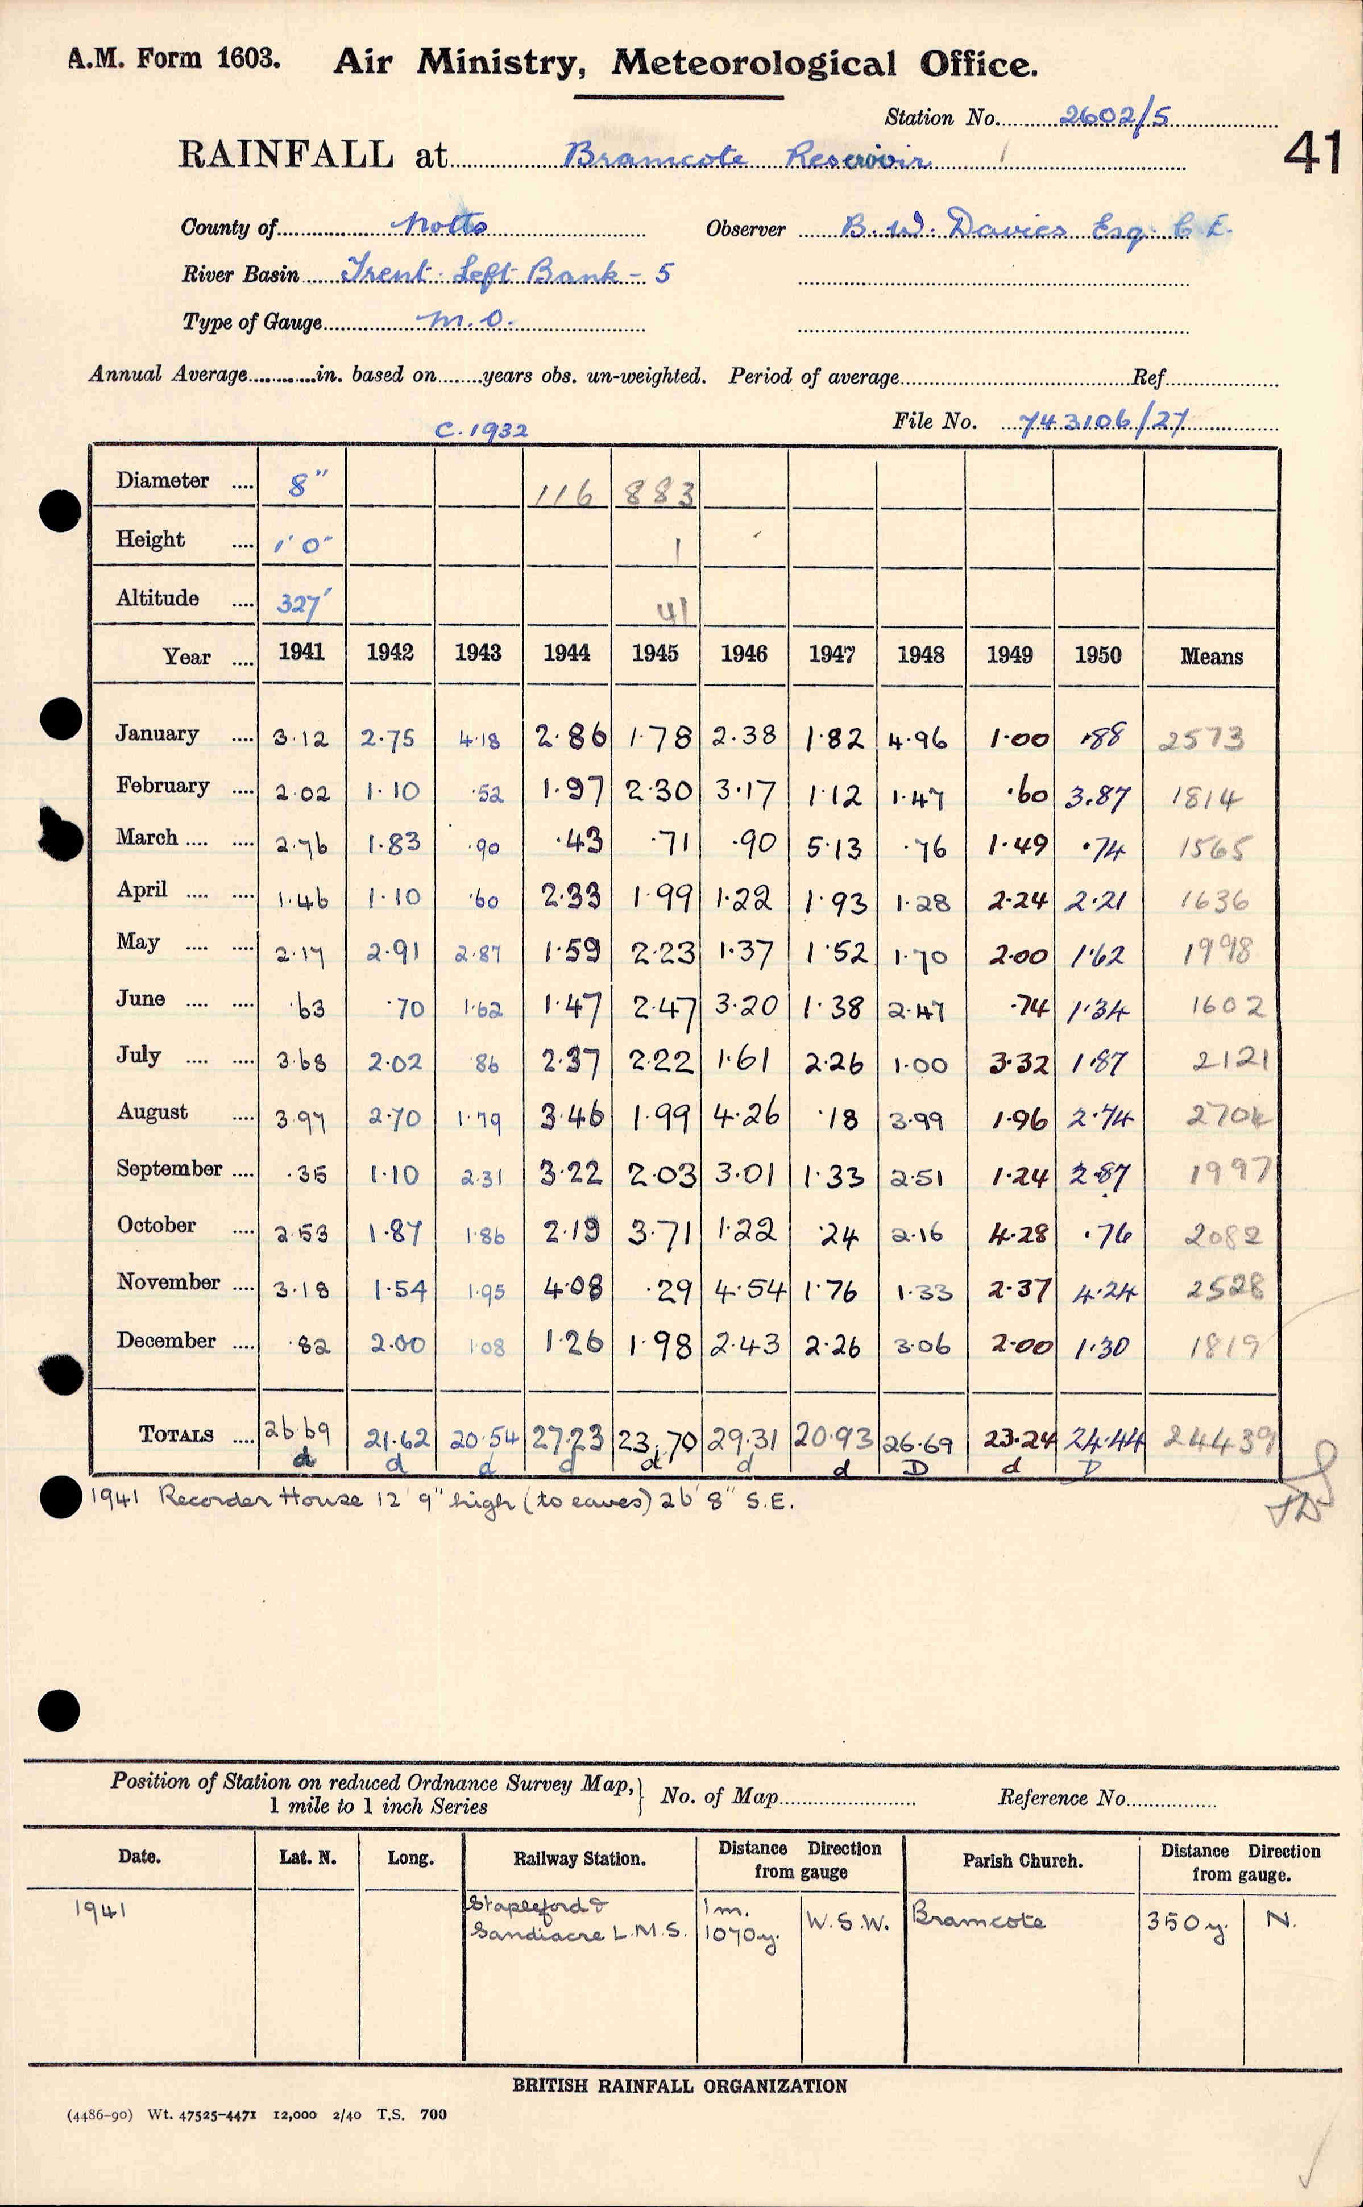 A.M. Form 1603. Air Ministry, Meteorological Office.
Station No. 2602/5
RAINFALL at Bramcote Reservoir 41
County of Notts Observer B. W. Davies Esq C E.
River Basin Trent Left Bank - 5
Type of Gauge M.O.
Annual Average in. based on years obs. un-weighted. Period of average Ref
File No. 743106/27
C.1932
Diameter .... 8" 116 883
Height .... 1' 0" 1
Altitude .... 327' 41
Year .... 1941 1942 1943 1944 1945 1946 1947 1948 1949 1950 Means
January .... 3.12 2.75 4.18 2.86 1.78 2.38 1.82 4.96 1.00 .88 2573
February .... 2.02 1.10 .52 1.97 2.30 3.17 1.12 1.47 .60 3.87 1814
March .... .... 2.76 1.83 .90 .43 .71 .90 5.13 .76 1.49 .74 1565
April .... .... 1.46 1.10 .60 2.33 1.99 1.22 1.93 1.28 2.24 2.21 1636
May .... .... 2.17 2.91 2.87 1.59 2.23 1.37 1.52 1.70 2.00 1.62 1998
June .... .... .63 .70 1.62 1.47 2.47 3.20 1.38 2.47 .74 1.34 1602
July .... .... 3.68 2.02 .86 2.37 2.22 1.61 2.26 1.00 3.32 1.87 2121
August .... 3.97 2.70 1.79 3.46 1.99 4.26 .18 3.99 1.96 2.74 2704
September .... .35 1.10 2.31 3.22 2.03 3.01 1.33 2.51 1.24 2.87 1997
October .... 2.53 1.87 1.86 2.19 3.71 1.22 .24 2.16 4.28 .76 2082
November .... 3.18 1.54 1.95 4.08 .29 4.54 1.76 1.33 2.37 4.24 2528
December .... .82 2.00 1.08 1.26 1.98 2.43 2.26 3.06 2.00 1.30 1819
TOTALS .... 26.69 21.62 20.54 27.23 23.70 29.31 20.93 26.69 23.24 24.44 24439
d d d d d d d D d D
1941 Recorder House 12' 9" high (to eaves) 26' 8" S.E.
Position of Station on reduced Ordnance Survey Map, 1 mile to 1 inch Series } No. of Map Reference No.
Date. Lat. N. Long. Railway Station. Distance Direction from gauge Parish Church. Distance Direction from gauge.
1941 Stapleford & Sandiacre L.M.S. 1m. 1070y. W.S.W. Bramcote 350y. N.
BRITISH RAINFALL ORGANIZATION
(4486-90) Wt. 47525-4471 12,000 2/40 T.S. 700